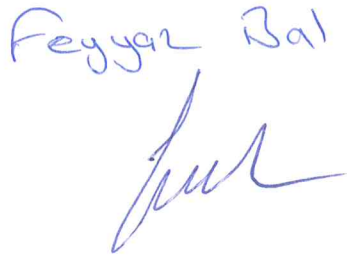 Feyyaz Bal